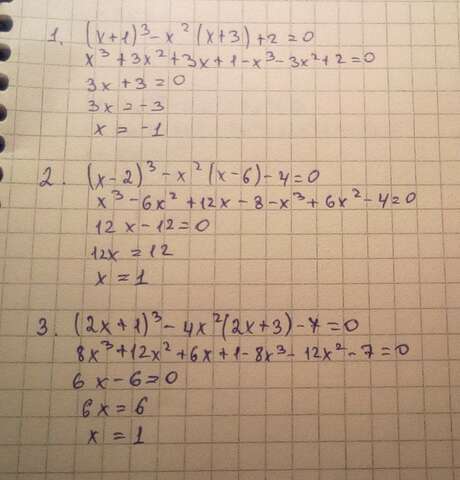 1. (x+1)³ - x² (x+3) + 2 = 0
x³ + 3x² + 3x + 1 - x³ - 3x² + 2 = 0
3x + 3 = 0
3x = -3
x = -1
2. (x-2)³ - x² (x-6) - 4 = 0
x³ - 6x² + 12x - 8 - x³ + 6x² - 4 = 0
12x - 12 = 0
12x = 12
x = 1
3. (2x+1)³ - 4x² (2x+3) - 7 = 0
8x³ + 12x² + 6x + 1 - 8x³ - 12x² - 7 = 0
6x - 6 = 0
6x = 6
x = 1